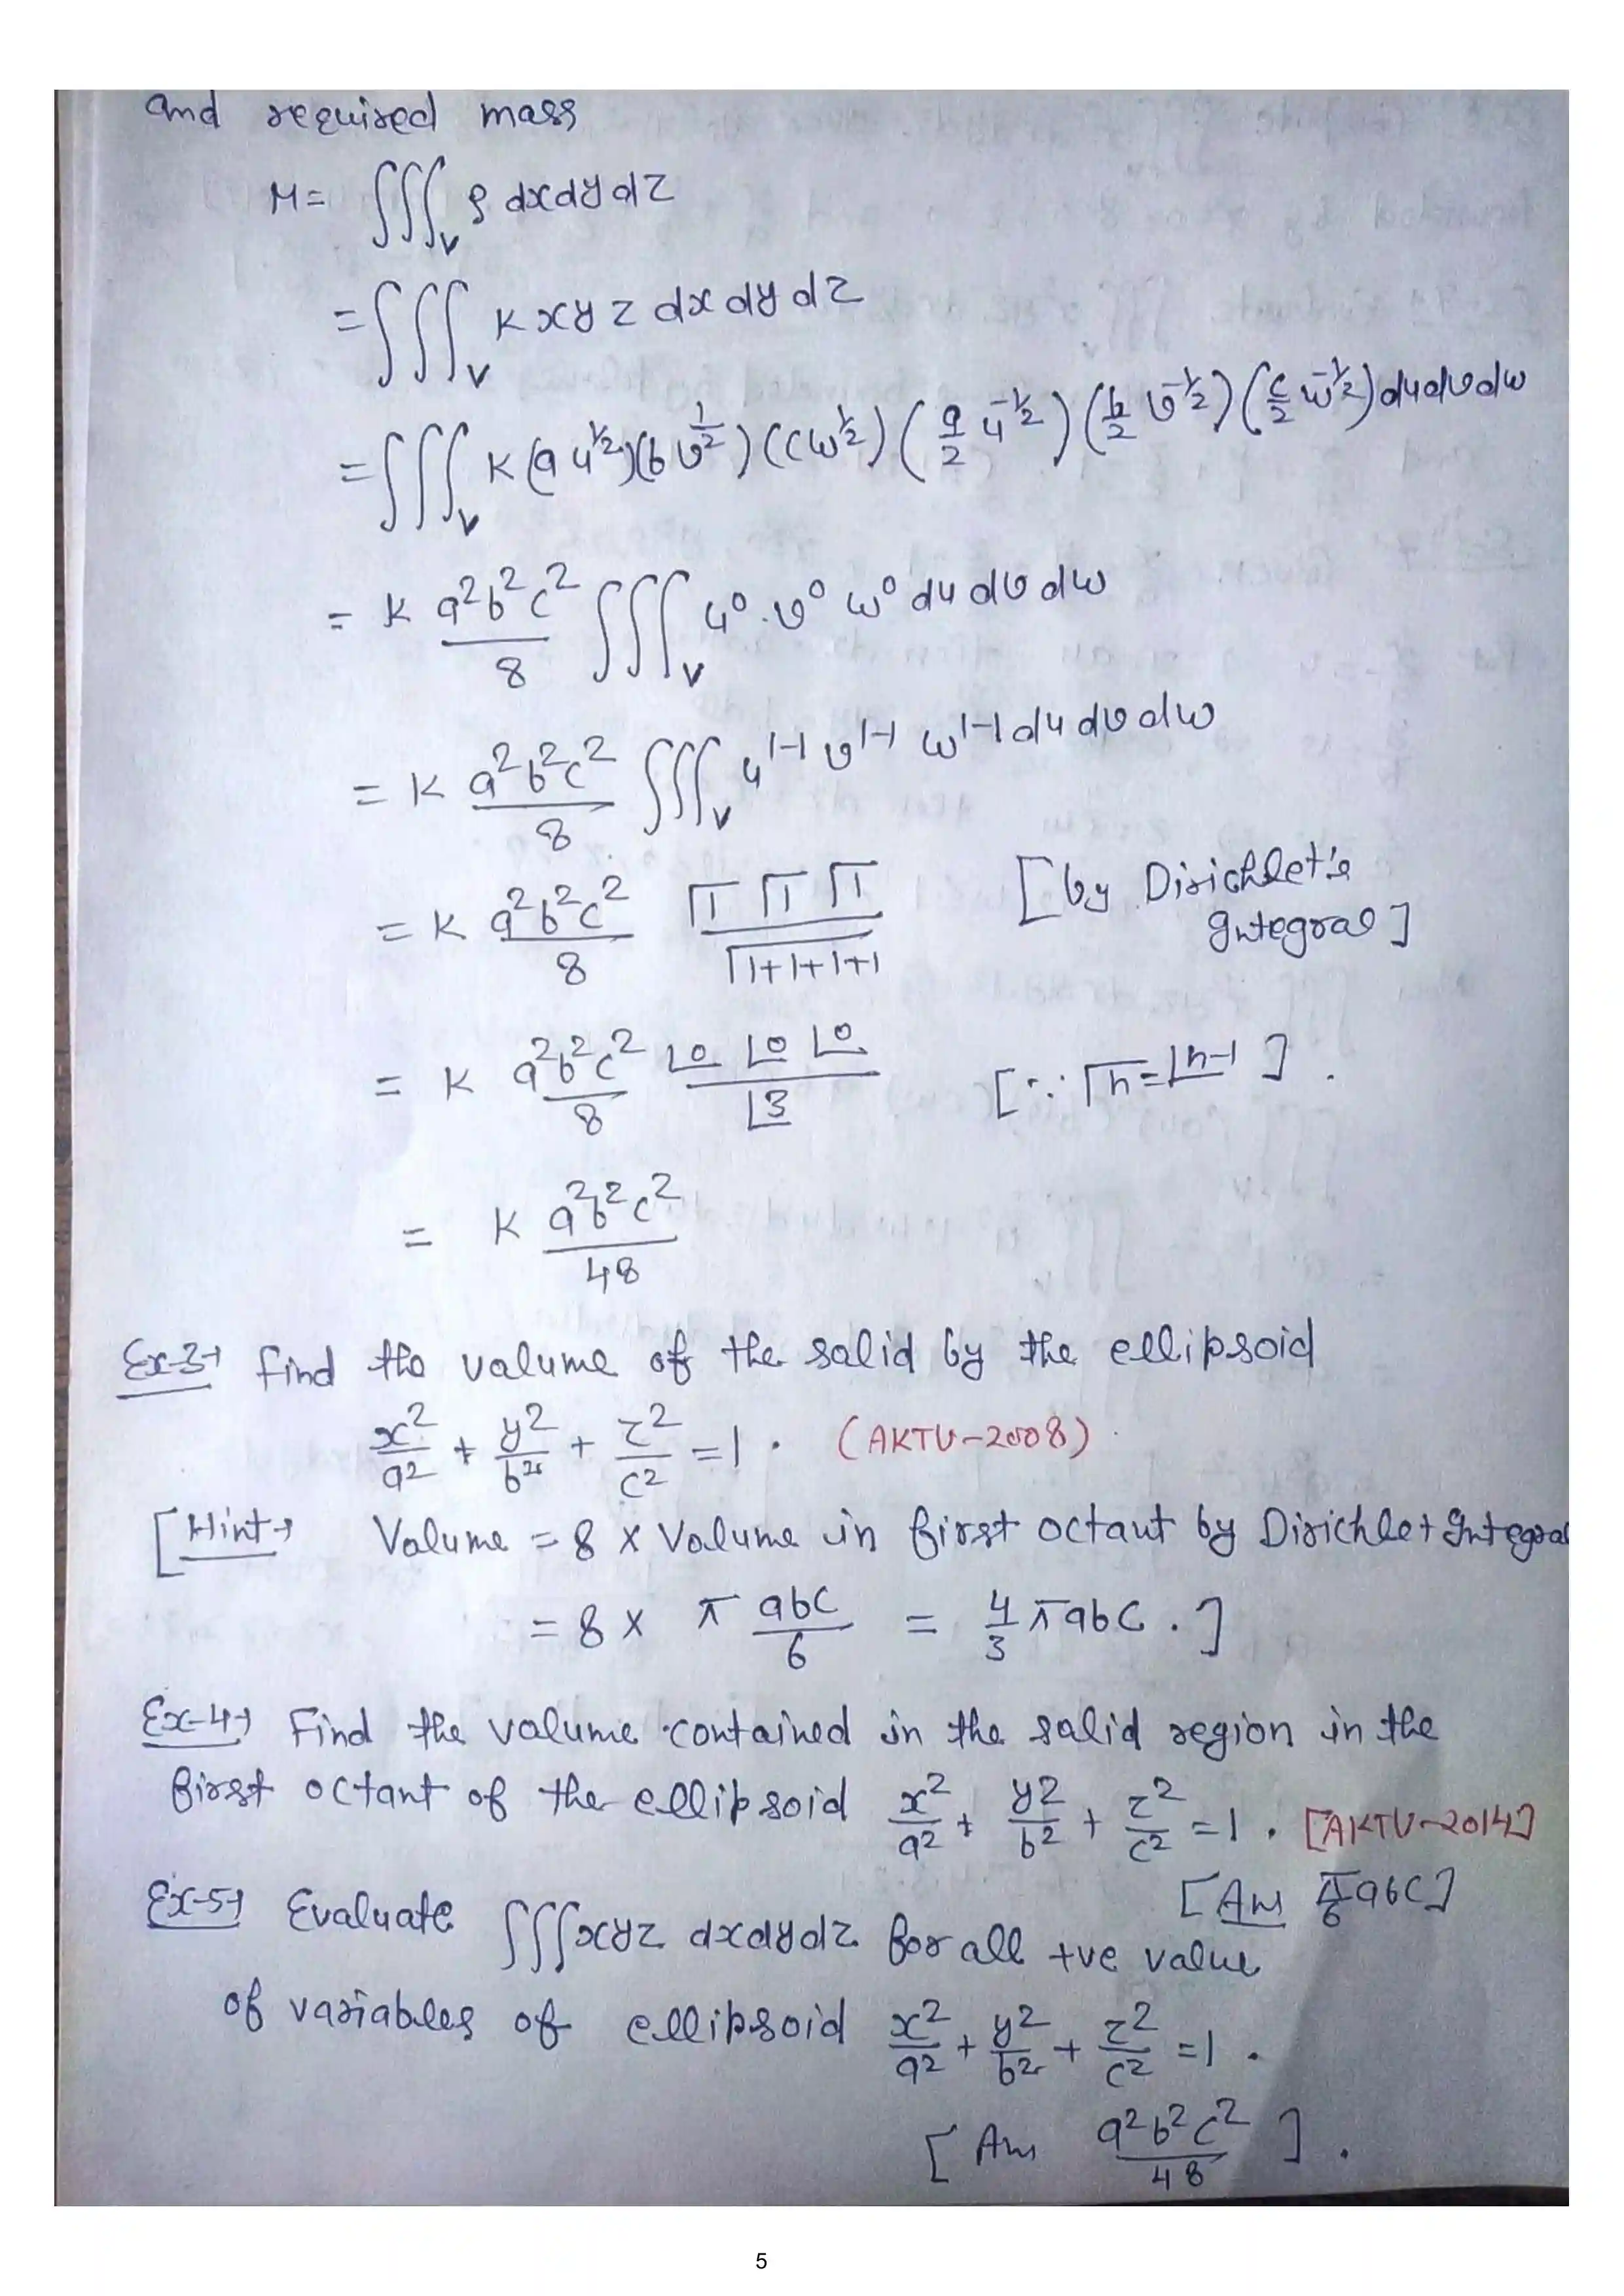 and required mass
M = ∭_V ρ dxdydz
= ∭_V K xyz dx dy dz
= ∭_V K (a u^{1/2})(b v^{1/2})(c w^{1/2}) (a/2 u^{-1/2}) (b/2 v^{-1/2}) (c/2 w^{-1/2}) du dv dw
= K a²b²c²/8 ∭_V u⁰ · v⁰ w⁰ du dv dw
= K a²b²c²/8 ∭_V u^{1-1} v^{1-1} w^{1-1} du dv dw
= K a²b²c²/8 Γ1 Γ1 Γ1 / Γ1+1+1+1 [by Dirichlet's
Integral]
= K a²b²c²/8 ∟0 ∟0 ∟0 / ∟3 [∵ Γn = ∟n-1].
= K a²b²c²/48
Ex-3→ find the volume of the solid by the ellipsoid
x²/a² + y²/b² + z²/c² = 1. (AKTU-2008)
[Hint→ Volume = 8 × Volume in first octant by Dirichlet Integral
= 8 × π abc/6 = 4/3 π abc.]
Ex-4→ Find the volume contained in the solid region in the
first octant of the ellipsoid x²/a² + y²/b² + z²/c² = 1. [AKTU-2014]
[Ans π/6 abc]
Ex-5→ Evaluate ∭ xyz dxdydz for all +ve value
of variables of ellipsoid x²/a² + y²/b² + z²/c² = 1.
[Ans a²b²c²/48].
5